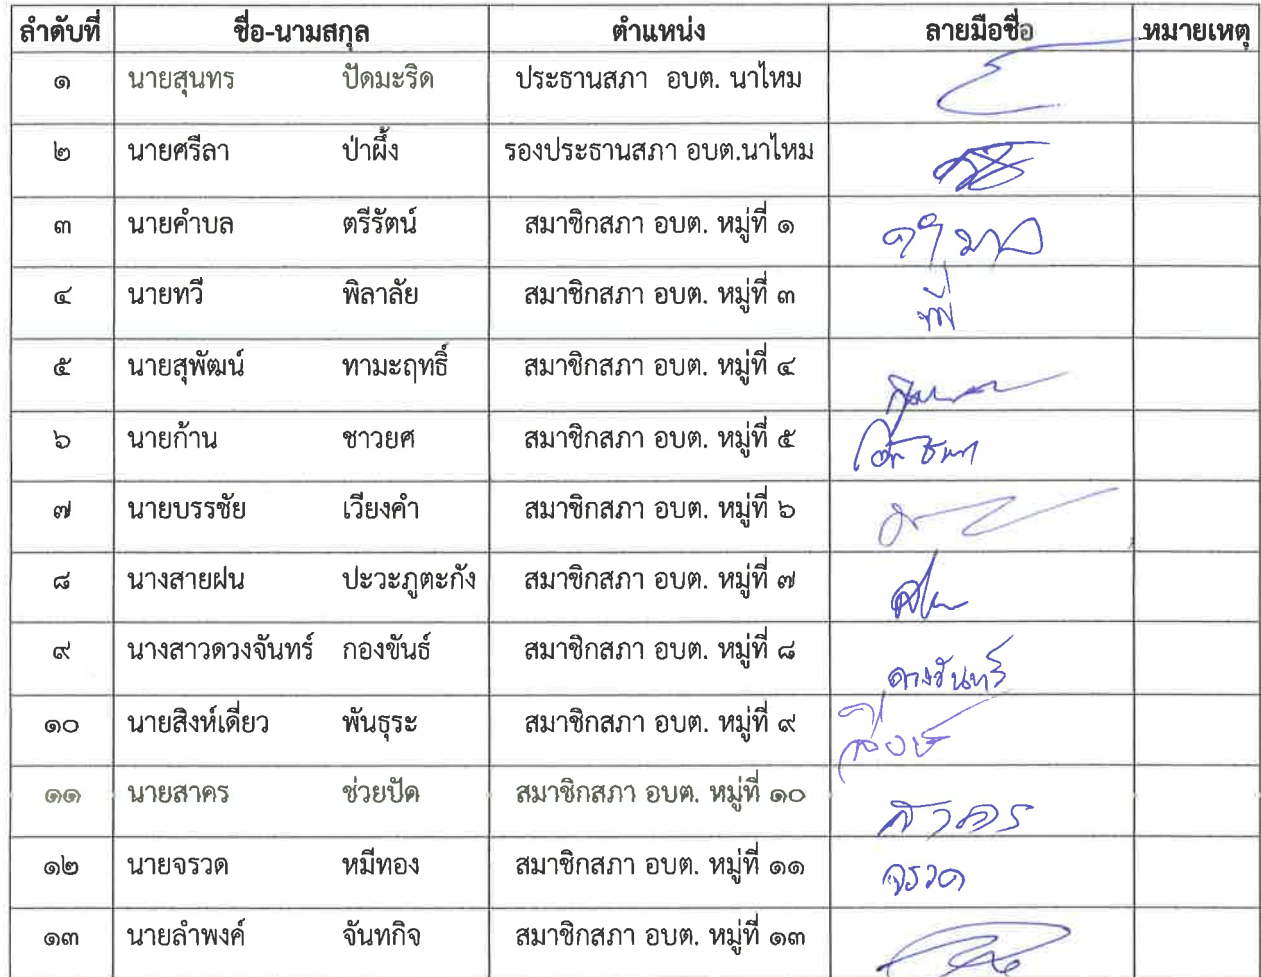 ลำดับที่ ชื่อ-นามสกุล ตำแหน่ง ลายมือชื่อ หมายเหตุ
๑ นายสุนทร ปัดมะริด ประธานสภา อบต. นาไหม
๒ นายศรีลา ป่าผึ้ง รองประธานสภา อบต.นาไหม
๓ นายคำบล ตรีรัตน์ สมาชิกสภา อบต. หมู่ที่ ๑ คำบล
๔ นายทวี พิลาลัย สมาชิกสภา อบต. หมู่ที่ ๓ ทวี
๕ นายสุพัฒน์ ทามะฤทธิ์ สมาชิกสภา อบต. หมู่ที่ ๔
๖ นายก้าน ชาวยศ สมาชิกสภา อบต. หมู่ที่ ๕
๗ นายบรรชัย เวียงคำ สมาชิกสภา อบต. หมู่ที่ ๖
๘ นางสายฝน ปะวะภูตะกัง สมาชิกสภา อบต. หมู่ที่ ๗
๙ นางสาวดวงจันทร์ กองขันธ์ สมาชิกสภา อบต. หมู่ที่ ๘ ดวงจันทร์
๑๐ นายสิงห์เดี่ยว พันธุระ สมาชิกสภา อบต. หมู่ที่ ๙
๑๑ นายสาคร ช่วยปัด สมาชิกสภา อบต. หมู่ที่ ๑๐ สาคร
๑๒ นายจรวด หมีทอง สมาชิกสภา อบต. หมู่ที่ ๑๑ จรวด
๑๓ นายลำพงค์ จันทกิจ สมาชิกสภา อบต. หมู่ที่ ๑๓